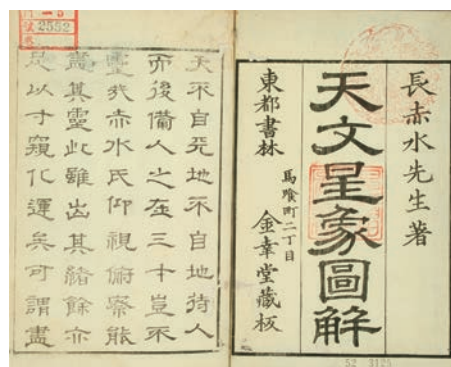 長赤水先生著
天文星象圖解
東都書林
馬喰町二丁目
金幸堂藏板
天不自天地不自地待人
而後備人之在三才豈不
靈哉赤水氏仰視俯察能
盡其靈此雖出其緒餘亦
足以寸窺化運矣可謂盡
2552